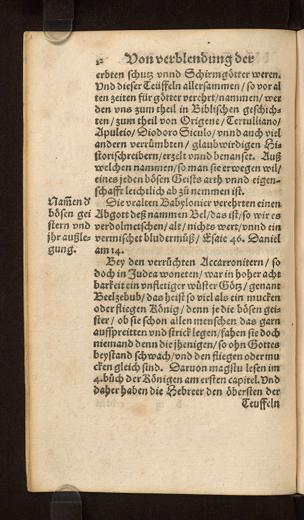 32 Von verblendung der
erbten schutz vnnd Schirmgötter weren.
Vnd dieser Teüffeln allersammen / so vor al
ten zeiten für götter verehrt / nammen / wer
den vns zum theil in Biblischen geschich-
ten / zum theil von Origene / Tertulliano /
Apuleio / Diodoro Siculo / vnnd auch viel
andern verrümbten / glaubwirdigen Hi-
storischreibern / erzelt vnnd benanset. Auß
welchen nammen / so man sie erwegen wil /
eines jeden bösen Geists arth vnnd eigen-
schafft leichtlich ab zů nemmen ist.
Nam̃en d
bösen gei
stern vnd
jhr außle-
gung.
Die vralten Babylonier verehrten einen
Abgott deß nammen Bel / das ist / so wir es
verdolmetschen / alt / nichts wert / vnnd ein
vermischet bludermůß / Esaie 46. Daniel
am 14.
Bey den verrüchten Accarronitern / so
doch in Judea woneten / war in hoher acht
barkeit ein vnfletiger wüster Götz / genant
Beelzebub / das heist so viel als ein mucken
oder fliegen König / denn je die bösen geis-
ster / ob sie schon allen menschen das garn
auffspreitten vnd strick legen / fahen sie doch
niemand denn die jhenigen / so ohn Gottes
beystand schwach / vnd den fliegen oder mu
cken gleich sind. Daruon magstu lesen im
4. bůch der Königen am ersten capitel. Vnd
daher haben die Hebreer den öbersten der
Teuffeln